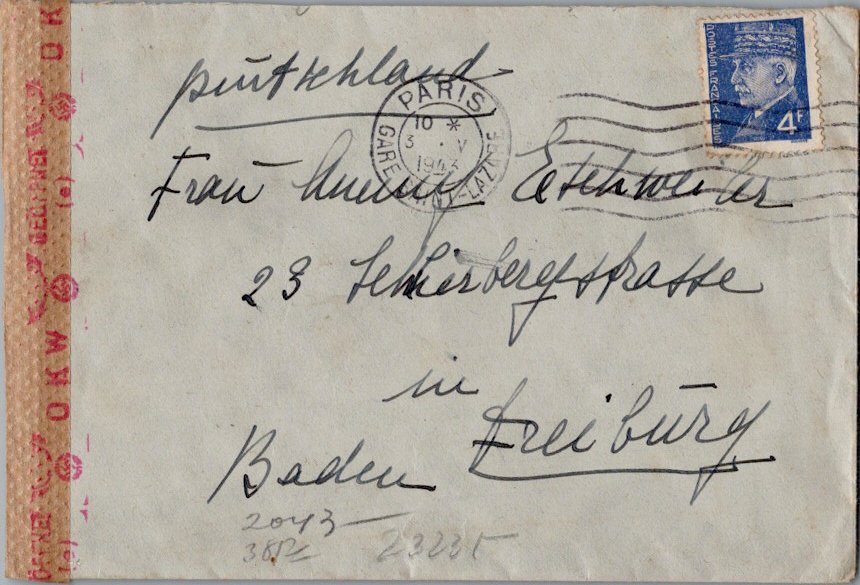 Deutschland
PARIS
10 *
3 . V
1943
GARE SAINT-LAZARE
POSTES FRANÇAISES
4F
Frau Eschweiler
23 strasse
in
Freiburg
Baden
2043
23235
OKW
GEÖFFNET
(e)
OKW
GEÖFFNET
(e)